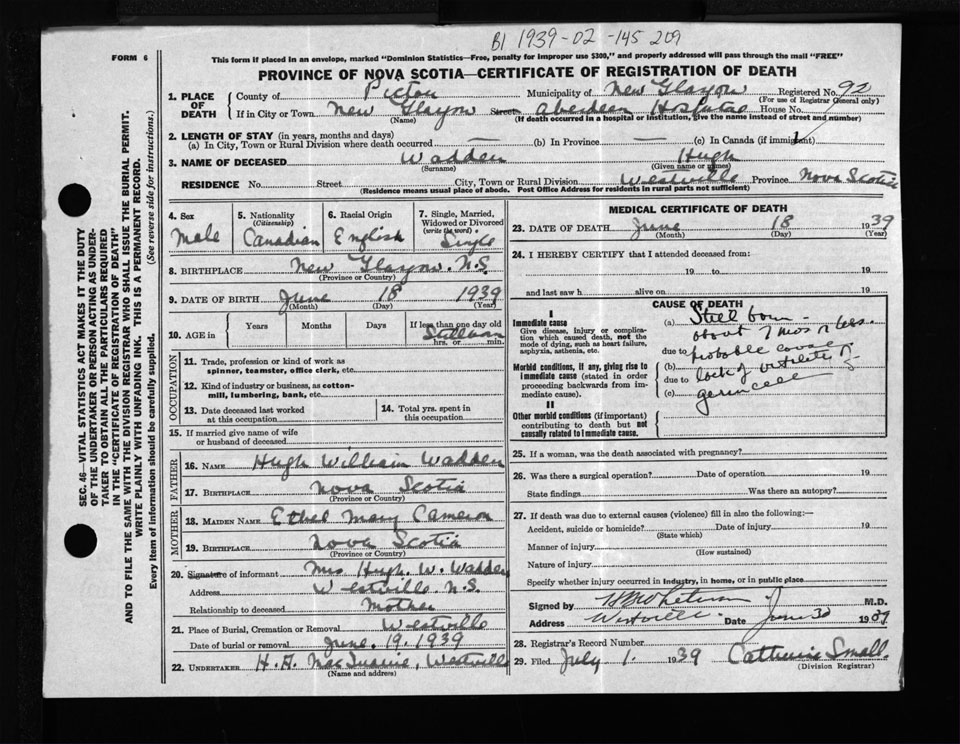 B1 1939-02-145209
FORM 6
This form if placed in an envelope, marked "Dominion Statistics—Free, penalty for improper use $300," and properly addressed will pass through the mail "FREE"
PROVINCE OF NOVA SCOTIA—CERTIFICATE OF REGISTRATION OF DEATH
1. PLACE OF DEATH
County of Pictou Municipality of New Glasgow Registered No. 92
(For use of Registrar General only)
If in City or Town New Glasgow Street Aberdeen Hospital House No.
(Name) (If death occurred in a hospital or institution, give the name instead of street and number)
2. LENGTH OF STAY (in years, months and days)
(a) In City, Town or Rural Division where death occurred — (b) In Province — (c) In Canada (if immigrant)
3. NAME OF DECEASED Wadden Hugh
(Surname) (Given name or names)
RESIDENCE No. Street City, Town or Rural Division Westville Province Nova Scotia
(Residence means usual place of abode. Post Office Address for residents in rural parts not sufficient)
4. Sex Male
5. Nationality (Citizenship) Canadian
6. Racial Origin English
7. Single, Married, Widowed or Divorced (write the word) Single
8. BIRTHPLACE New Glasgow. N.S.
(Province or Country)
9. DATE OF BIRTH June 18 1939
(Month) (Day) (Year)
10. AGE in Years Months Days If less than one day old
Stillborn
hrs. or min.
OCCUPATION
11. Trade, profession or kind of work as spinner, teamster, office clerk, etc.
12. Kind of industry or business, as cotton-mill, lumbering, bank, etc.
13. Date deceased last worked at this occupation
14. Total yrs. spent in this occupation
15. If married give name of wife or husband of deceased
FATHER
16. NAME Hugh William Wadden
17. BIRTHPLACE Nova Scotia
(Province or Country)
MOTHER
18. MAIDEN NAME Ethel Mary Cameron
19. BIRTHPLACE Nova Scotia
(Province or Country)
20. Signature of informant Mrs Hugh. W. Wadden
Address Westville N.S.
Relationship to deceased Mother
21. Place of Burial, Cremation or Removal Westville
Date of burial or removal June. 19. 1939
22. UNDERTAKER H. A. Westville
(Name and address)
MEDICAL CERTIFICATE OF DEATH
23. DATE OF DEATH June 18 1939
(Month) (Day) (Year)
24. I HEREBY CERTIFY that I attended deceased from:
19 to 19
and last saw h alive on 19
CAUSE OF DEATH
I
Immediate cause
Give disease, injury or complication which caused death, not the mode of dying, such as heart failure, asphyxia, asthenia, etc.
(a) Still born —
about 7 mos
due to probable cause
Morbid conditions, if any, giving rise to immediate cause (stated in order proceeding backwards from immediate cause).
(b) lack of vitality of
due to
(c) germ cell
II
Other morbid conditions (if important) contributing to death but not causally related to immediate cause.
25. If a woman, was the death associated with pregnancy?
26. Was there a surgical operation? Date of operation 19
State findings Was there an autopsy?
27. If death was due to external causes (violence) fill in also the following:—
Accident, suicide or homicide? Date of injury 19
(State which)
Manner of injury
(How sustained)
Nature of injury
Specify whether injury occurred in industry, in home, or in public place
Signed by M.D.
Address Westville Date June 30 1939
28. Registrar's Record Number
29. Filed July 1. 1939 Catherine Small
(Division Registrar)
SEC. 46—VITAL STATISTICS ACT MAKES IT THE DUTY
OF THE UNDERTAKER OR PERSON ACTING AS UNDER-
TAKER TO OBTAIN ALL THE PARTICULARS REQUIRED
IN THE "CERTIFICATE OF REGISTRATION OF DEATH"
AND TO FILE THE SAME WITH THE DIVISION REGISTRAR WHO SHALL ISSUE THE BURIAL PERMIT.
WRITE PLAINLY WITH UNFADING INK. THIS IS A PERMANENT RECORD.
Every item of information should be carefully supplied. (See reverse side for instructions.)